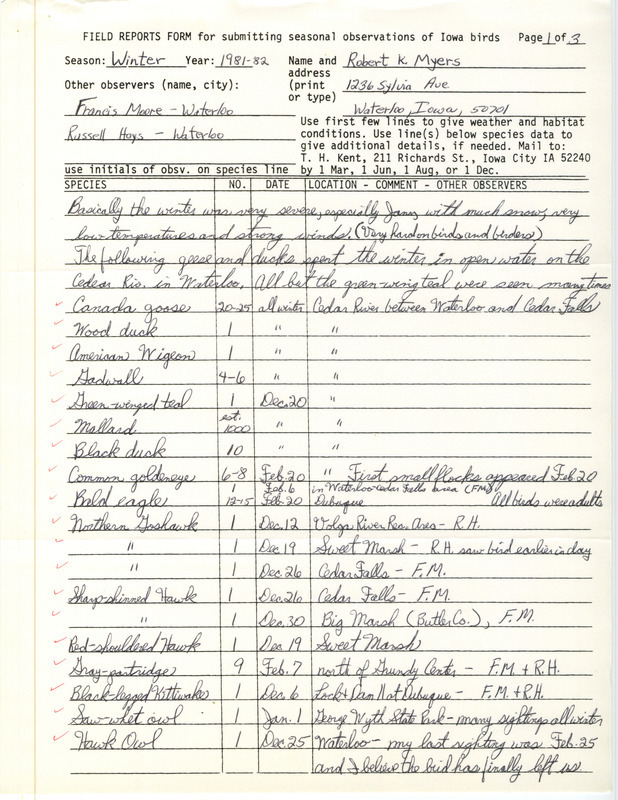 FIELD REPORTS FORM for submitting seasonal observations of Iowa birds Page 1 of 3
Season: Winter Year: 1981-82 Name and address (print or type) Robert K. Myers
1236 Sylvia Ave
Waterloo, Iowa, 50701
Other observers (name, city):
Francis Moore - Waterloo
Russell Hays - Waterloo
use initials of obsv. on species line
Use first few lines to give weather and habitat
conditions. Use line(s) below species data to
give additional details, if needed. Mail to:
T. H. Kent, 211 Richards St., Iowa City IA 52240
by 1 Mar, 1 Jun, 1 Aug, or 1 Dec.
SPECIES NO. DATE LOCATION - COMMENT - OTHER OBSERVERS
Basically the winter was very severe, especially Jan., with much snow, very
low temperatures and strong winds. (Very hard on birds and birders)
The following geese and ducks spent the winter in open water on the
Cedar Riv. in Waterloo. All bet the green-wing teal were seen many times
Canada goose 20-25 all winter Cedar River between Waterloo and Cedar Falls
Wood duck 1 " "
American Wigeon 1 " "
Gadwall 4-6 " "
Green-winged teal 1 Dec. 20 "
Mallard est. 1000 " "
Black duck 10 " "
Common goldeneye 6-8 Feb. 20 " First small flocks appeared Feb. 20
Bald eagle 1 Feb. 6 in Waterloo-Cedar Falls area (FM)
12-15 Feb. 20 Dubuque All birds were adults
Northern Goshawk 1 Dec. 12 Volga River Rec. Area - R.H.
" 1 Dec. 19 Sweet Marsh - R.H. saw bird earlier in day
" 1 Dec. 26 Cedar Falls - F.M.
Sharp-shinned Hawk 1 Dec. 26 Cedar Falls - F.M.
" 1 Dec. 30 Big Marsh (Butler Co.), F.M.
Red-shouldered Hawk 1 Dec. 19 Sweet Marsh
Gray-partridge 9 Feb. 7 north of Grundy Center - F.M. + R.H.
Black-legged Kittiwake 1 Dec. 6 Lock + Dam No 1 Dubuque - F.M. + R.H.
Saw-whet owl 1 Jan. 1 George Wyth State Park - many sightings all winter
Hawk Owl 1 Dec. 25 Waterloo - my last sighting was Feb. 25
and I believe the bird has finally left us.